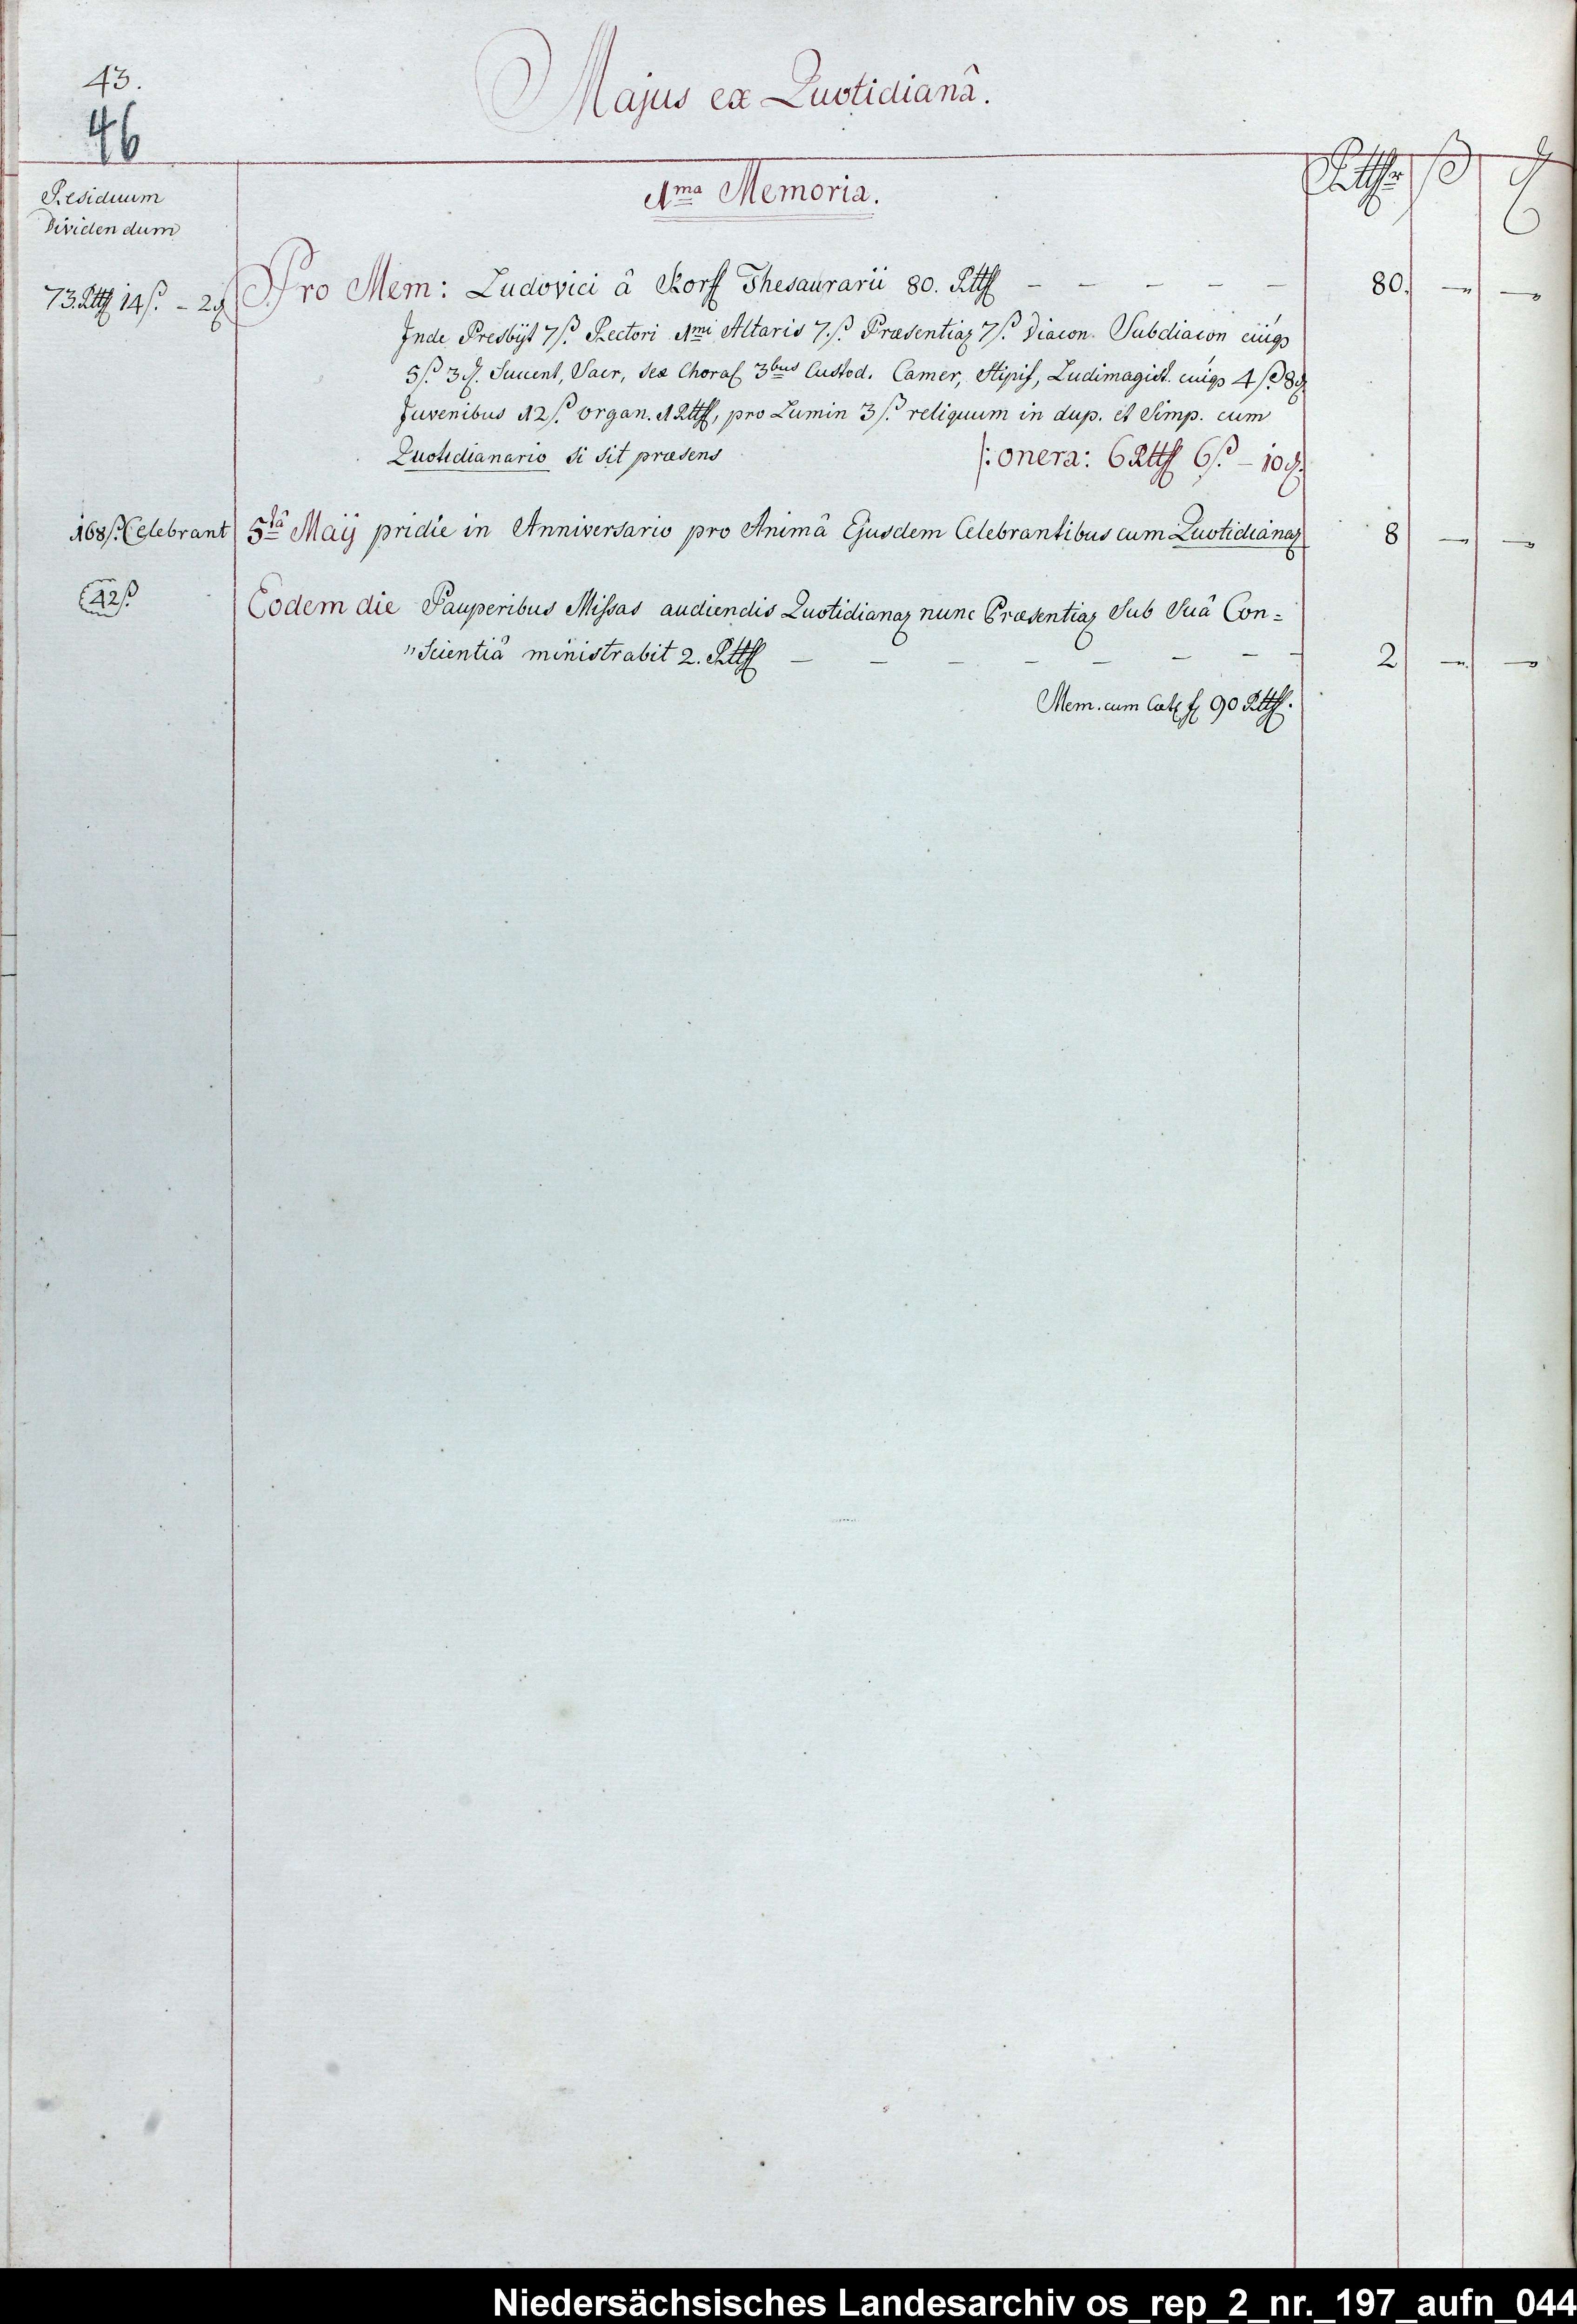 43.
46
Majus ex Quotidianâ.
Residuum
Dividendum
1ma Memoria.
Rttlr ß ₰
73. Rttl 14 ß. – 2 ₰
Pro Mem: Ludovici â Korff Thesaurarii 80. Rttl – – – – – 80. — —
Inde Presbijt 7 ß. Rectori 1mi Altaris 7. ß. Præsentiaʒ 7 ß. Diacon. Subdiacon
5 ß. 3 ₰. Succent, Sacr, sex Choral 3bus Custod. Camer, Stipif, Ludimagist. 4 ß. 8 ₰
Juvenibus 12 ß. organ. 1 Rttl, pro Lumin 3 ß. reliquum in dup. et Simp. cum
Quotidianario si sit præsens /: onera: 6 Rttl 6 ß – 10 ₰.
168 ß. Celebrant
5tâ Maÿ pridie in Anniversario pro Animâ Ejusdem Celebrantibus cum Quotidianaʒ 8 — —
42 ß
Eodem die Pauperibus Missas audiendis Quotidianaʒ nunc Præsentiaʒ Sub Suâ Con=
"Scientiâ ministrabit 2. Rttl – – – – – – – – 2 — —
Mem. cum 90 Rttl.
Niedersächsisches Landesarchiv os_rep_2_nr._197_aufn_044